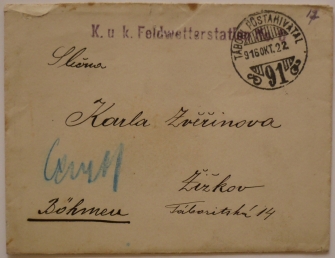 K. u k. Feldwetterstation
TÁBORI POSTAHIVATAL
916 OKT. 22
91
Slečna
Karla Zvěřinova
Žižkov
Böhmen
Táboritská 14